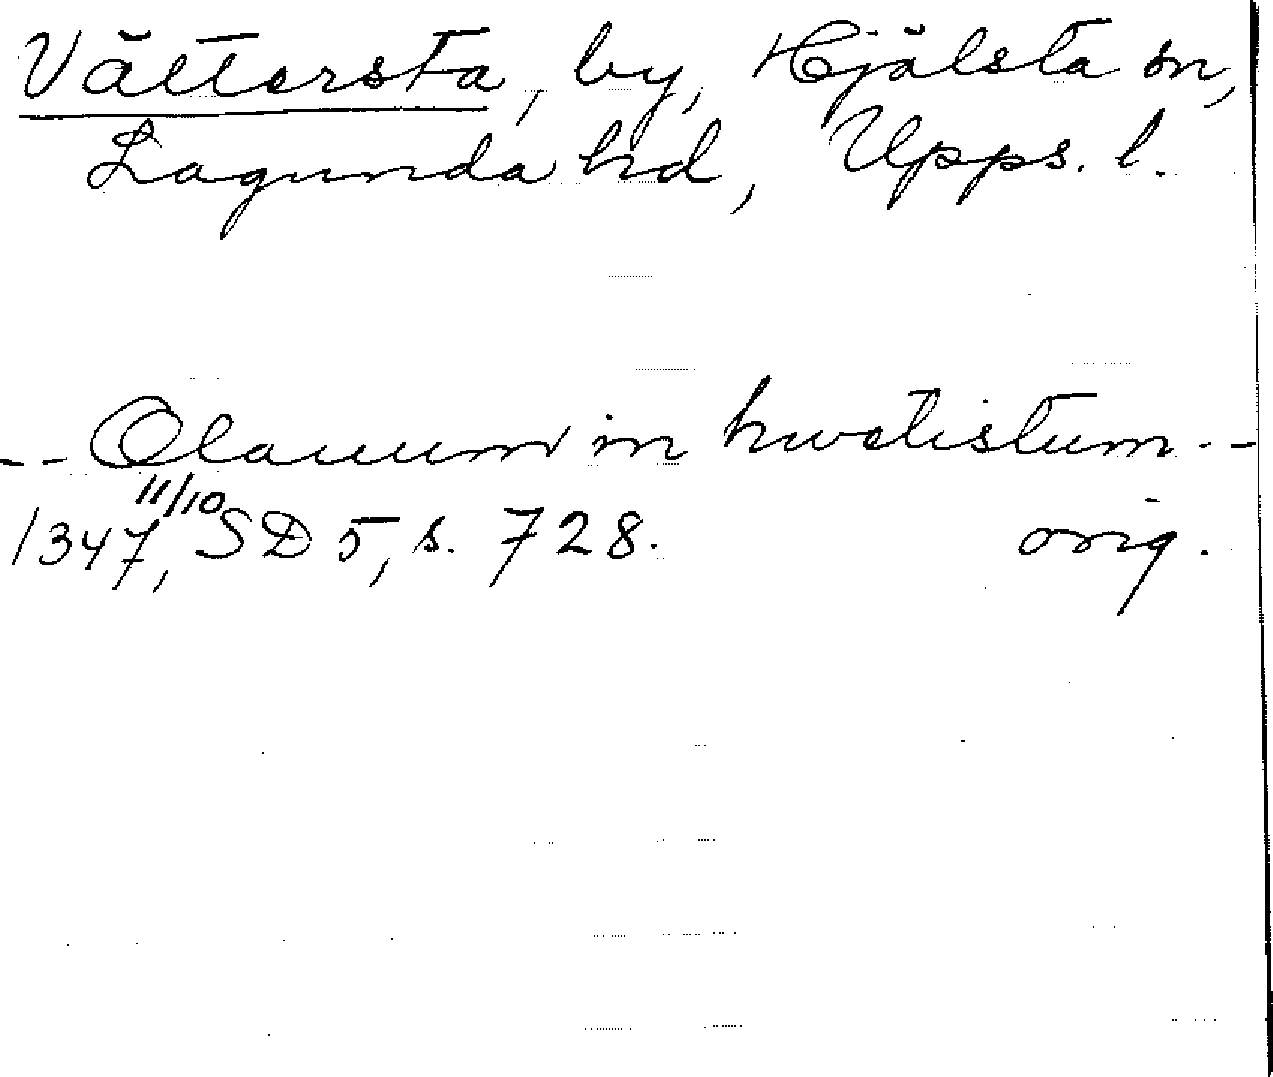 Vättersta, by, Hjälsta sn,
Lagunda hd, Upps. l.
-- Olauum in hwetistum --
11/10
1347, SD 5, s. 728. orig.